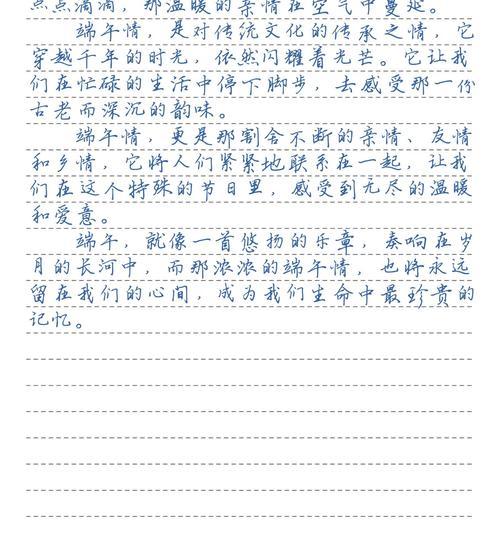 点点滴滴，那温暖的亲情在空气中蔓延。
端午情，是对传统文化的传承之情，它
穿越千年的时光，依然闪耀着光芒。它让我
们在忙碌的生活中停下脚步，去感受那一份
古老而深沉的韵味。
端午情，更是那割舍不断的亲情、友情
和乡情，它将人们紧紧地联系在一起，让我
们在这个特殊的节日里，感受到无尽的温暖
和爱意。
端午，就像一首悠扬的乐章，奏响在岁
月的长河中，而那浓浓的端午情，也将永远
留在我们的心间，成为我们生命中最珍贵的
记忆。